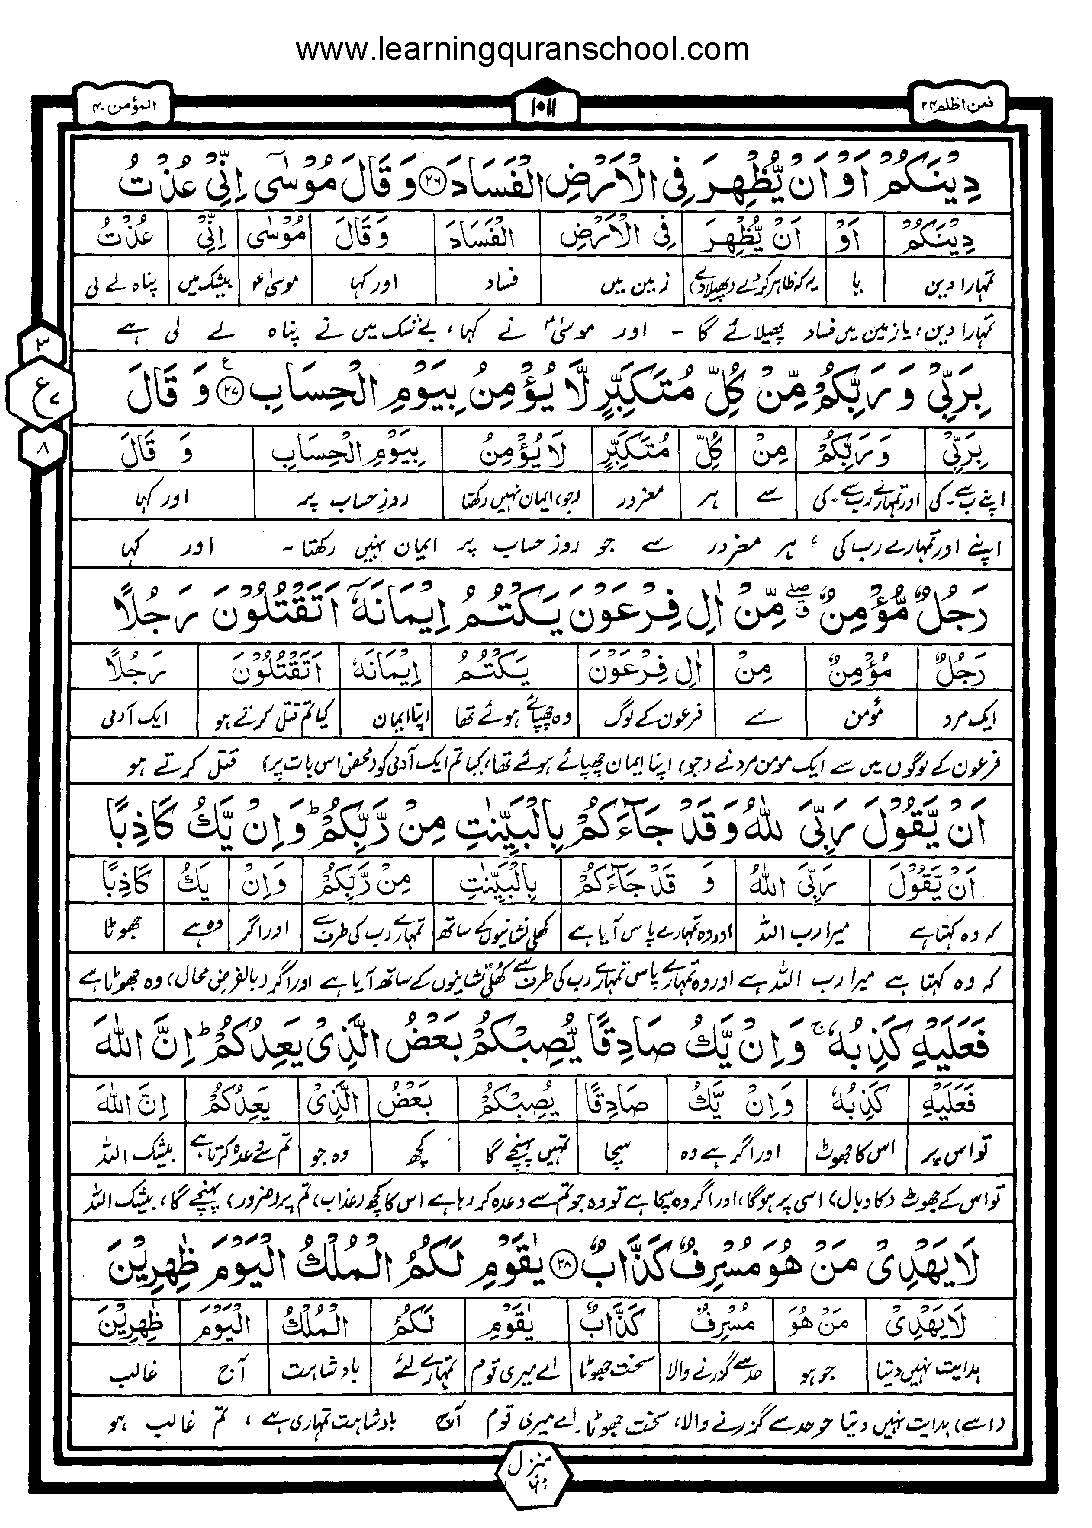 www.learningquranschool.com
فمن اظلم ۲۴
۱۰۱۱
المؤمن ۴۰
دِيْنَكُمْ اَوْ اَنْ يُّظْهِرَ فِى الْاَرْضِ الْفَسَادَ ﴿۲۶﴾ وَ قَالَ مُوْسٰۤى اِنِّىْ عُذْتُ
دِيْنَكُمْ اَوْ اَنْ يُّظْهِرَ فِى الْاَرْضِ الْفَسَادَ وَقَالَ مُوْسٰى اِنِّىْ عُذْتُ
تمہارا دین یا یہ کہ ظاہر کردے (پھیلادے) زمین میں فساد اور کہا موسیٰؑ بیشک میں پناہ لے لی
تمہارا دین، یا زمین میں فساد پھیلائے گا - اور موسیٰؑ نے کہا، بے شک میں نے پناہ لے لی ہے
بِرَبِّىْ وَ رَبِّكُمْ مِّنْ كُلِّ مُتَكَبِّرٍ لَّا يُؤْمِنُ بِيَوْمِ الْحِسَابِ ﴿۲۷﴾ وَ قَالَ
۳
ع ۷
۸
بِرَبِّىْ وَرَبِّكُمْ مِنْ كُلِّ مُتَكَبِّرٍ لَا يُؤْمِنُ بِيَوْمِ الْحِسَابِ وَ قَالَ
اپنے رب سے۔ کی اور تمہارے رب سے۔ کی سے ہر مغرور (جو) ایمان نہیں رکھتا روزِ حساب پر اور کہا
اپنے اور تمہارے رب کی، ہر مغرور سے جو روز حساب پر ایمان نہیں رکھتا - اور کہا
رَجُلٌ مُّؤْمِنٌ مِّنْ اٰلِ فِرْعَوْنَ يَكْتُمُ اِيْمَانَهٗۤ اَتَقْتُلُوْنَ رَجُلًا
رَجُلٌ مُؤْمِنٌ مِنْ اٰلِ فِرْعَوْنَ يَكْتُمُ اِيْمَانَهٗ اَتَقْتُلُوْنَ رَجُلًا
ایک مرد مؤمن سے فرعون کے لوگ وہ چھپائے ہوئے تھا اپنا ایمان کیا تم قتل کرتے ہو ایک آدمی
فرعون کے لوگوں میں سے ایک مومن مرد نے (جو) اپنا ایمان چھپائے ہوئے تھا، کیا تم ایک آدمی کو (محض اس بات پر) قتل کرتے ہو
اَنْ يَّقُوْلَ رَبِّىَ اللّٰهُ وَقَدْ جَآءَكُمْ بِالْبَيِّنٰتِ مِنْ رَّبِّكُمْ ؕ وَاِنْ يَّكُ كَاذِبًا
اَنْ يَّقُوْلَ رَبِّىَ اللّٰهُ وَ قَدْ جَآءَكُمْ بِالْبَيِّنٰتِ مِنْ رَّبِّكُمْ وَاِنْ يَّكُ كَاذِبًا
کہ وہ کہتا ہے میرا رب اللہ اور وہ تمہارے پاس آیا ہے کھلی نشانیوں کے ساتھ تمہارے رب کی طرف سے اور اگر وہ ہے جھوٹا
کہ وہ کہتا ہے میرا رب اللہ ہے اور وہ تمہارے پاس تمہارے رب کی طرف سے کھلی نشانیوں کے ساتھ آیا ہے اور اگر (بالفرض محال) وہ جھوٹا ہے
فَعَلَيْهِ كَذِبُهٗ ۚ وَاِنْ يَّكُ صَادِقًا يُّصِبْكُمْ بَعْضُ الَّذِىْ يَعِدُكُمْ ؕ اِنَّ اللّٰهَ
فَعَلَيْهِ كَذِبُهٗ وَاِنْ يَّكُ صَادِقًا يُصِبْكُمْ بَعْضُ الَّذِىْ يَعِدُكُمْ اِنَّ اللّٰهَ
تو اس پر اس کا جھوٹ اور اگر ہے وہ سچا تمہیں پہنچے گا کچھ وہ جو تم سے وعدہ کرتا ہے بیشک اللہ
تو اس کے جھوٹ (کا وبال) اسی پر ہوگا، اور اگر وہ سچا ہے تو وہ جو تم سے وعدہ کر رہا ہے اس کا کچھ (عذاب) تم پر (ضرور) پہنچے گا، بیشک اللہ
لَا يَهْدِىْ مَنْ هُوَ مُسْرِفٌ كَذَّابٌ ﴿۲۸﴾ يٰقَوْمِ لَكُمُ الْمُلْكُ الْيَوْمَ ظٰهِرِيْنَ
لَا يَهْدِىْ مَنْ هُوَ مُسْرِفٌ كَذَّابٌ يٰقَوْمِ لَكُمُ الْمُلْكُ الْيَوْمَ ظٰهِرِيْنَ
ہدایت نہیں دیتا جو ہو حد سے گزرنے والا سخت جھوٹا اے میری قوم تمہارے لئے بادشاہت آج غالب
(اسے) ہدایت نہیں دیتا جو حد سے گزرنے والا، سخت جھوٹا، اے میری قوم آج بادشاہت تمہاری ہے، تم غالب ہو
منزل ۶